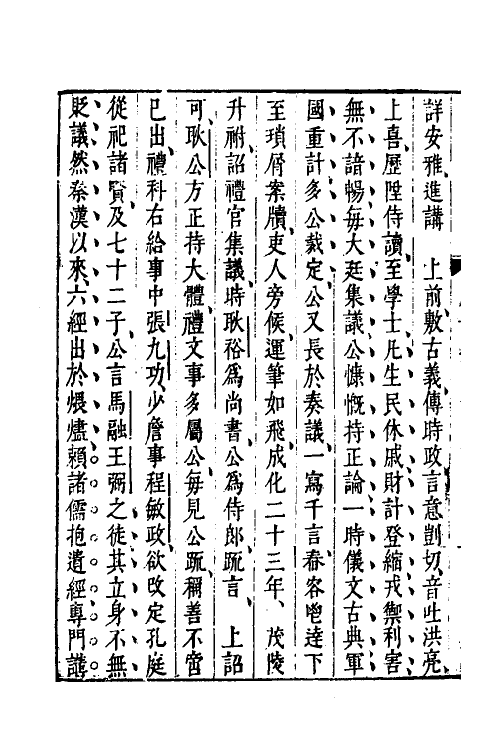 詳安雅進講　上前敷古義傳時政言意剴切音吐洪亮
上喜歷陞侍讀至學士凡生民休戚財計登縮戎禦利害
無不諳暢每大廷集議公慷慨持正論一時儀文古典軍
國重計多公裁定公又長於奏議一寫千言春容鬯達下
至瑣屑案牘吏人旁候運筆如飛成化二十三年茂陵
升祔詔禮官集議時耿裕爲尚書公爲侍郎䟽言　上詔
可耿公方正持大體禮文事多屬公每見公䟽稱善不啻
已出禮科右給事中張九功少詹事程敏政欲改定孔庭
從祀諸賢及七十二子公言馬融王弼之徒其立身不無
貶議然秦漢以來六經出於煨燼賴諸儒抱遺經專門講